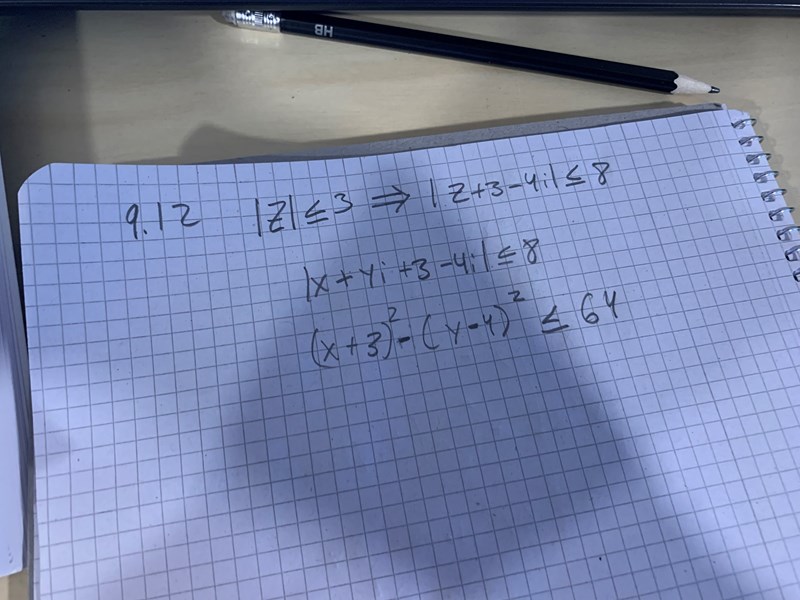 HB
9.12 |z| ≤ 3 ⇒ |z+3-4i| ≤ 8
|x+yi+3-4i| ≤ 8
(x+3)² - (y-4)² ≤ 64